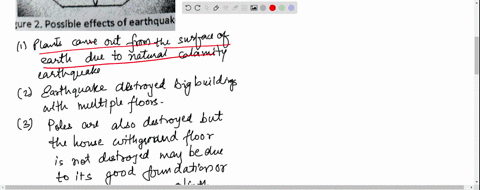 gure 2. Possible effects of earthquak
(1) Plants came out from the surface of
earth due to natural calamity
earthquake
(2) Earthquake destroyed big buildings
with multiple floors.
(3) Poles are also destroyed but
the house with ground floor
is not destroyed may be due
to its good foundation or